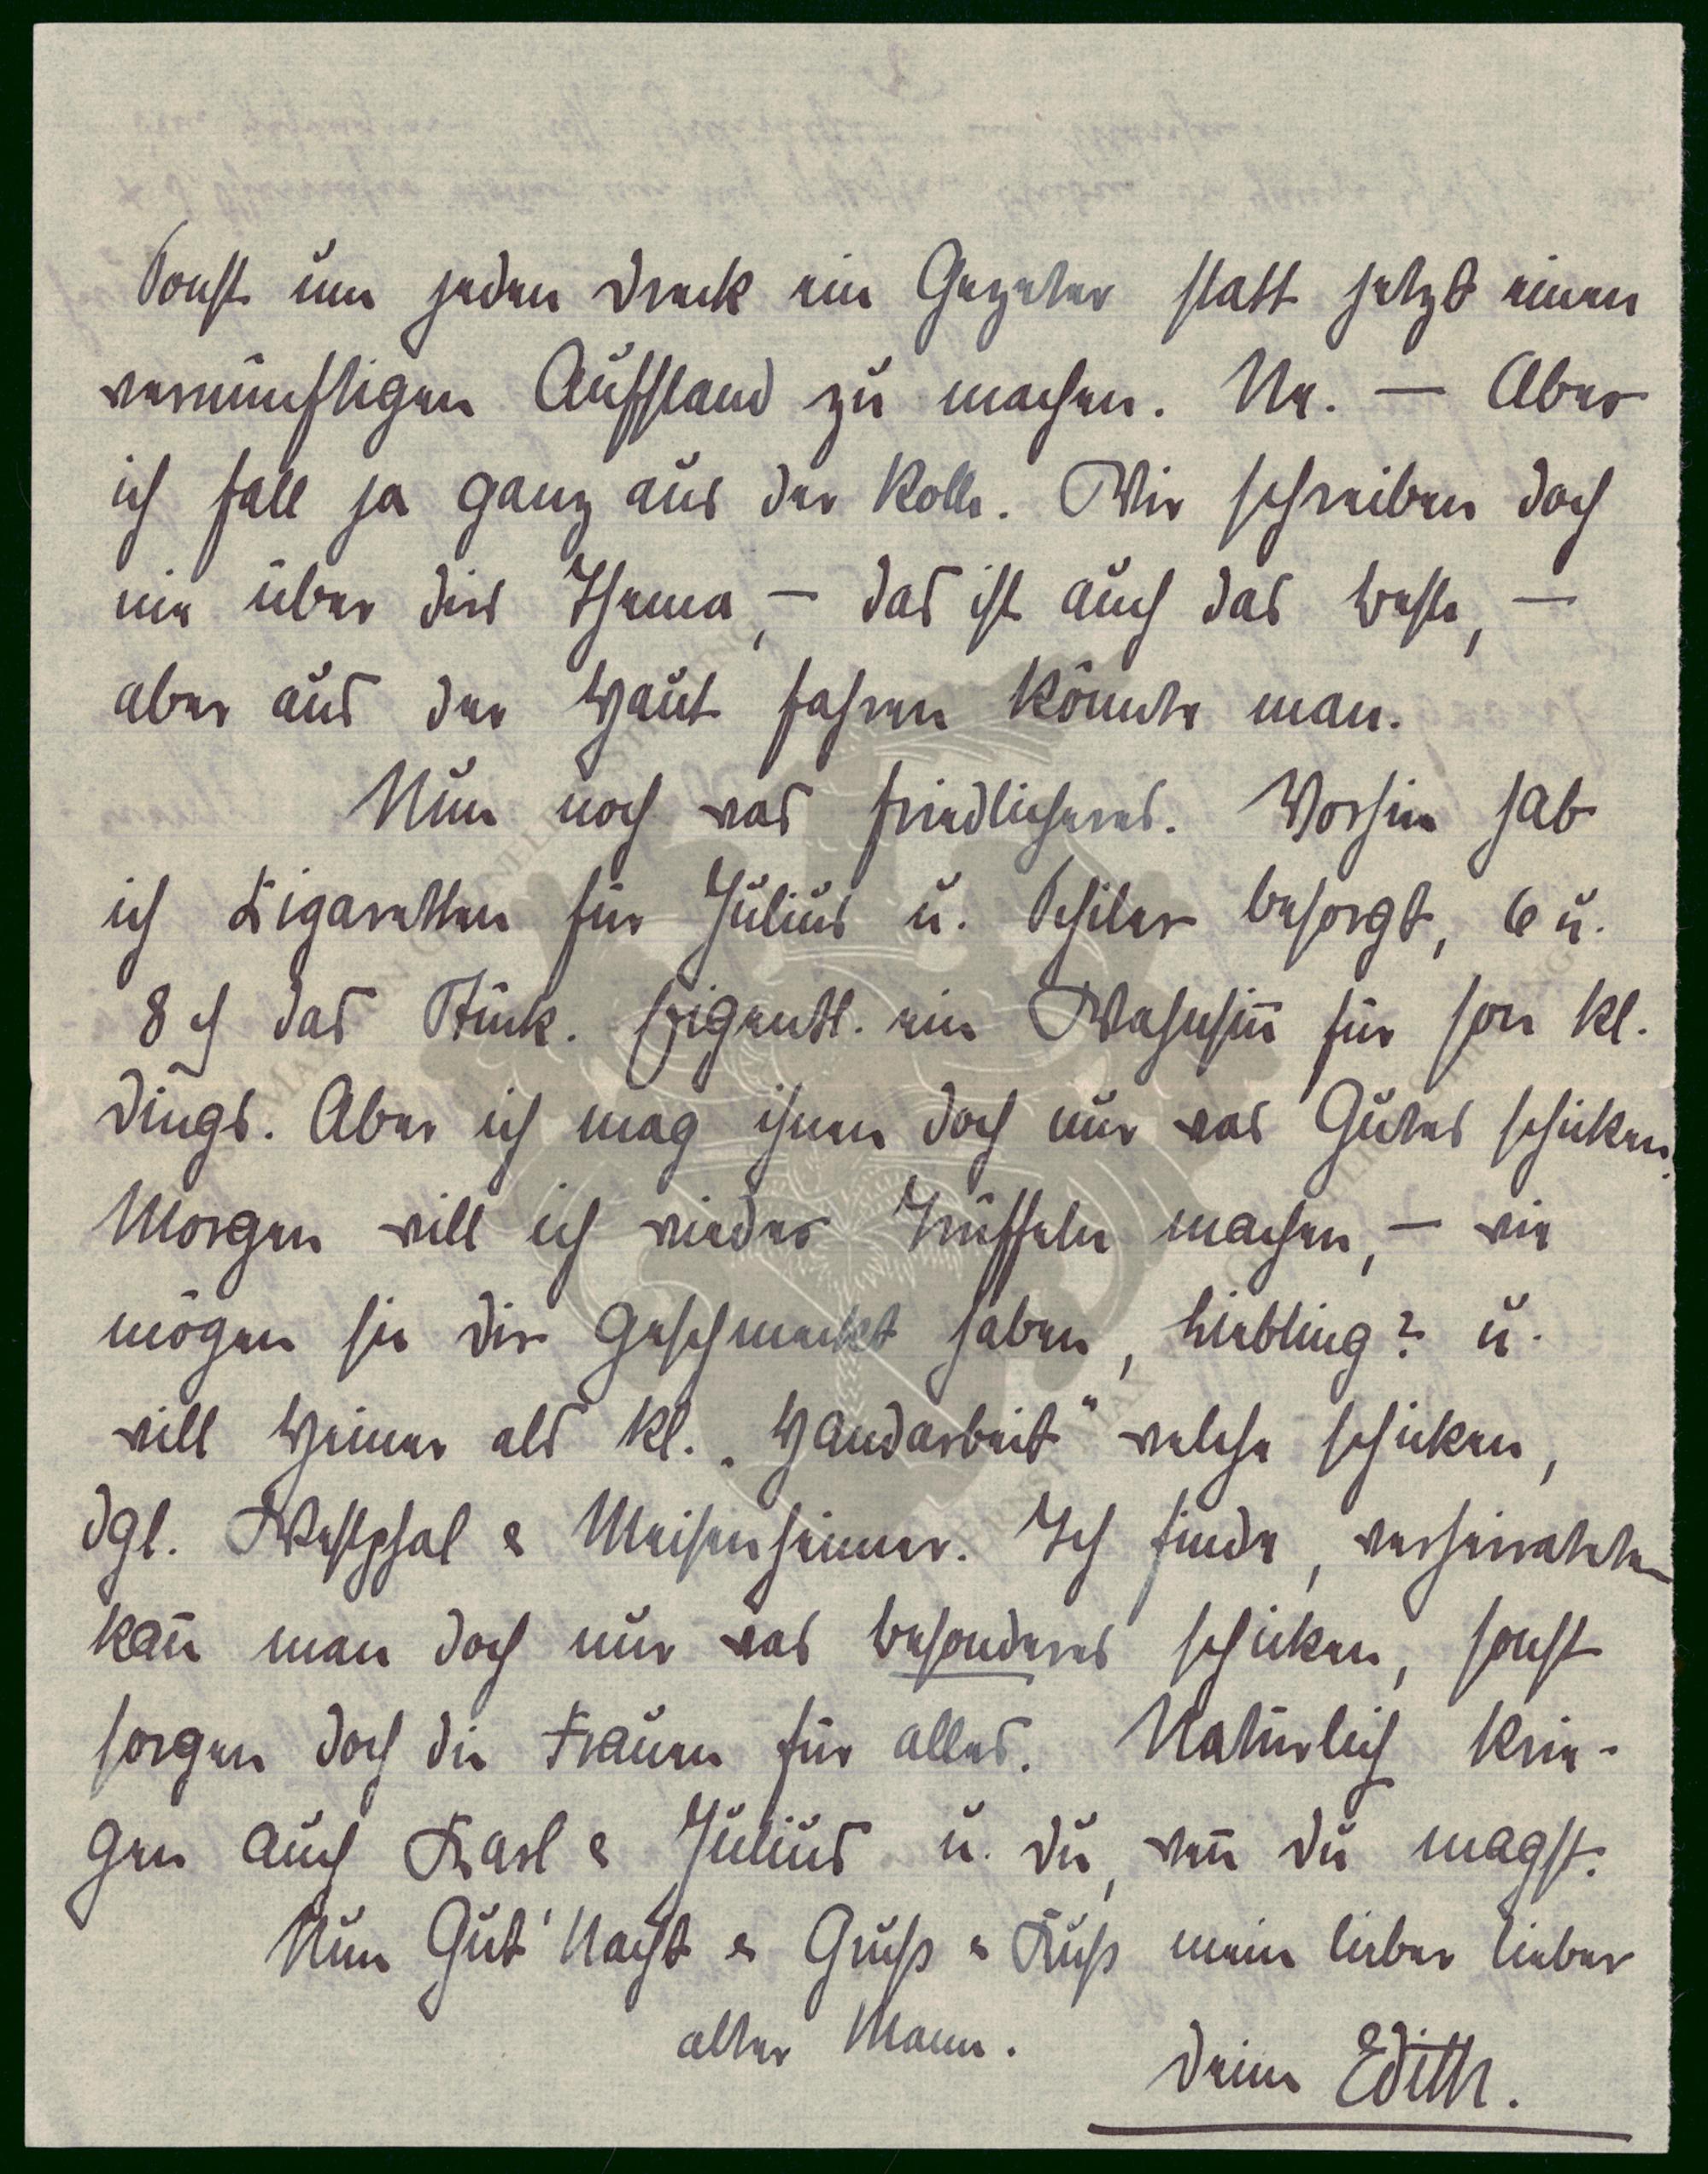 Sonst um jeden Dreck ein Gezeter statt jetzt einen
vernünftigen Aufstand zu machen. Ne. — Aber
ich fall ja ganz aus der Rolle. Wir schreiben doch
nie über dies Thema, — das ist auch das beste, —
aber aus der Haut fahren könnte man.
Nun noch was friedlicheres. Vorhin hab
ich Zigaretten für Julius u. Schiler besorgt, 6 u.
8 ₰ das Stück. Eigentl. ein Wahnsin̄ für son kl.
Dings. Aber ich mag ihnen doch nur was Gutes schicken.
Morgen will ich wieder Trüffeln machen, — wie
mögen sie dir geschmeckt haben, Liebling? u.
will Heiner als kl. „Handarbeit" welche schicken,
dgl. Westphal & Meisenheimer. Ich finde, verheirateten
kan̄ man doch nur was besonderes schicken, sonst
sorgen doch die Frauen für alles. Natürlich krie-
gen auch Karl & Julius u. du, wen̄ du magst.
Nun Gut' Nacht & Gruß & Kuß mein lieber lieber
alter Mann.
Deine Edith.